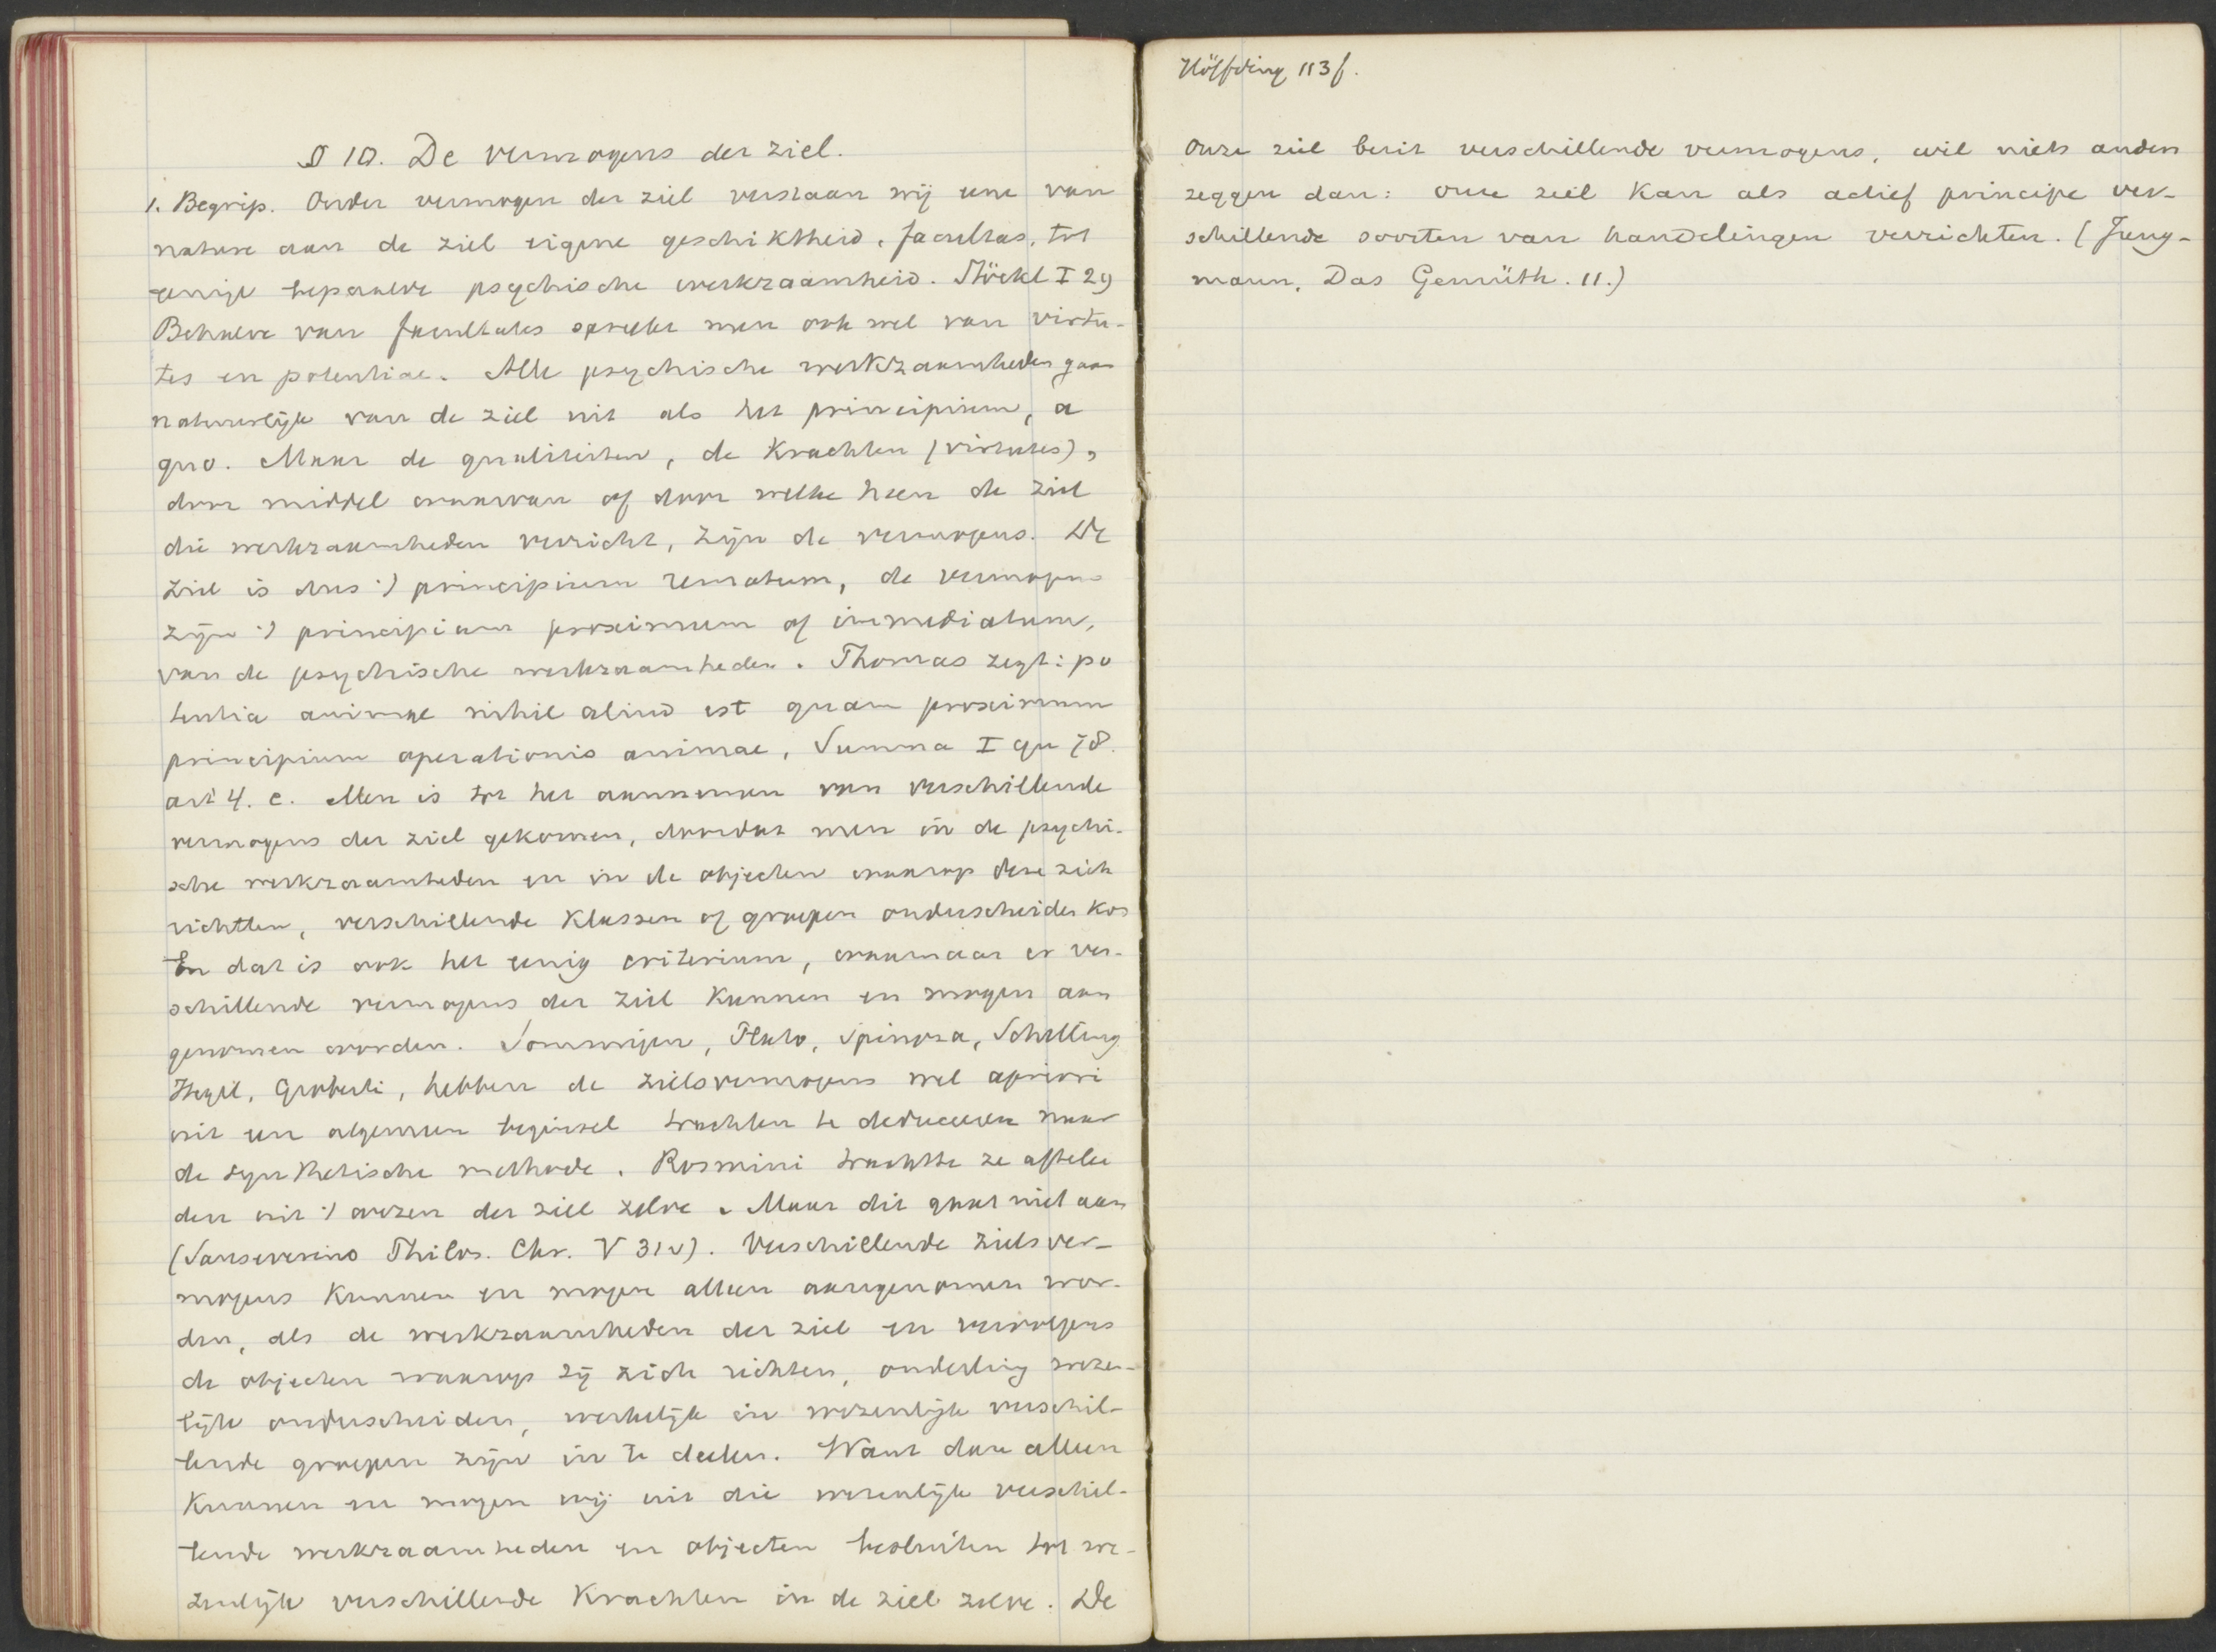 § 10. De vermogens der ziel.
1. Begrip. Onder vermogen der ziel verstaan wij eene van
nature aan de ziel eigene geschiktheid, facultas, tot
eenige bepaalde psychische werkzaamheid. Stöckl I 29
Behalve van facultates spreekt men ook wel van virtu-
tes en potentiae. Alle psychische werkzaamheden gaan
natuurlijk van de ziel uit als het principium, a
quo. Maar de qualiteiten, de Krachten (virtutes),
door middel waarvan of door welke heen de ziel
die werkzaamheden verricht, zijn de vermogens. De
ziel is dus :) principium remotum, de vermogens
zijn :) principium proximum of immediatum,
van de psychische werkzaamheden. Thomas zegt: po
tentia animae nihil aliud est quam proximum
principium operationis animae, Summa I qu 78.
art 4. c. Men is tot het aannemen van verschillende
vermogens der ziel gekomen, doordat men in de psychi-
sche werkzaamheden en in de objecten waarop deze zich
richtten, verschillende Klassen of groepen onderscheiden kon
En dat is ook het eenig criterium, waarnaar er ver-
schillende vermogens der ziel Kunnen en mogen aan
genomen worden. Sommigen, Plato, Spinoza, Schelling
Hegel, Gioberti, hebben de zielsvermogens wel apriori
uit een algemeen beginsel trachten te deduceeren naar
de synthetische methode. Rosmini trachtte ze afte lei
den uit :) wezen der ziel zelve. Maar dit gaat niet aan
(Sanseverino Philos. Chr. V 31v). Verschillende zielsver-
mogens Kunnen en mogen alleen aangenomen wor-
den, als de werkzaamheden der ziel en vervolgens
de objecten waarop zij zich richten, onderling wezen-
lijk onderscheiden, werkelijk in wezenlijk verschil-
lende groepen zijn in te deelen. Want dan alleen
Kunnen en mogen wij uit die wezenlijk verschil-
lende werkzaamheden en objecten besluiten tot we-
zenlijk verschillende Krachten in de ziel zelve. De
Höffding 113 f.
Onze ziel bezit verschillende vermogens, wil niets anders
zeggen dan: onze ziel Kan als actief principe ver-
schillende soorten van handelingen verrichten. (Jung-
mann, Das Gemüth. 11.)